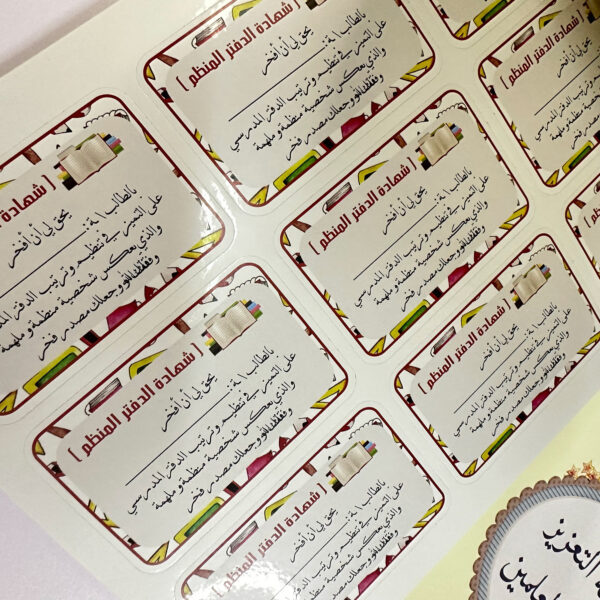 [ شهادة الدفتر المنظم ]
يحق لي أن أفخر
بالطالب / ـة:
على التميز في تنظيم وترتيب الدفتر المدرسي
والذي يعكس شخصية منظمة وملهمة
وفقك الله وجعلك مصدر فخر
[ شهادة الدفتر المنظم ]
يحق لي أن أفخر
بالطالب / ـة:
على التميز في تنظيم وترتيب الدفتر المدرسي
والذي يعكس شخصية منظمة وملهمة
وفقك الله وجعلك مصدر فخر
[ شهادة الدفتر المنظم ]
يحق لي أن أفخر
بالطالب / ـة:
على التميز في تنظيم وترتيب الدفتر المدرسي
والذي يعكس شخصية منظمة وملهمة
وفقك الله وجعلك مصدر فخر
[ شهادة الدفتر المنظم ]
يحق لي أن أفخر
بالطالب / ـة:
على التميز في تنظيم وترتيب الدفتر المدرسي
والذي يعكس شخصية منظمة وملهمة
وفقك الله وجعلك مصدر فخر
[ شهادة الدفتر المنظم ]
يحق لي أن أفخر
بالطالب / ـة:
على التميز في تنظيم وترتيب الدفتر المدرسي
والذي يعكس شخصية منظمة وملهمة
وفقك الله وجعلك مصدر فخر
[ شهادة الدفتر المنظم ]
يحق لي أن أفخر
بالطالب / ـة:
على التميز في تنظيم وترتيب الدفتر المدرسي
والذي يعكس شخصية منظمة وملهمة
التعزيز